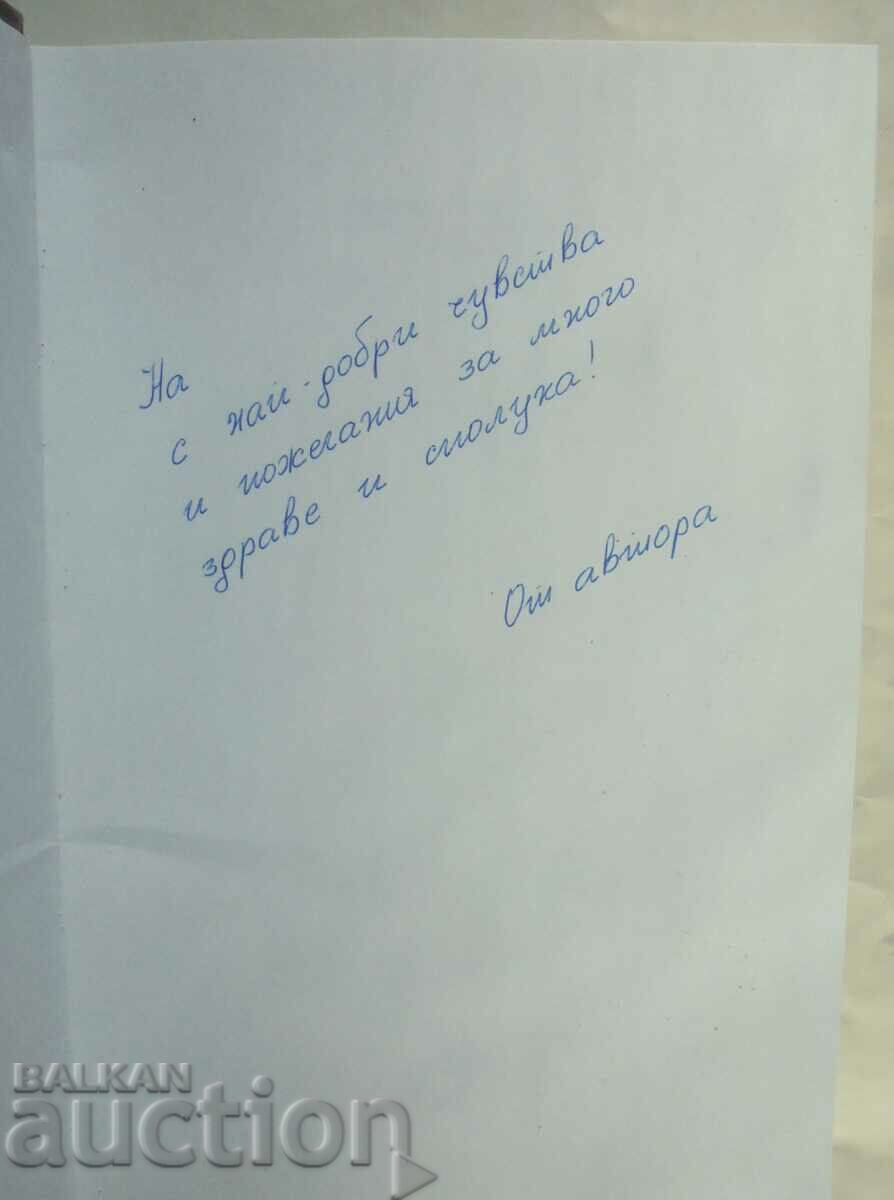 На
с най-добри чувства
и пожелания за много
здраве и сполука!
От автора
BALKAN
auction